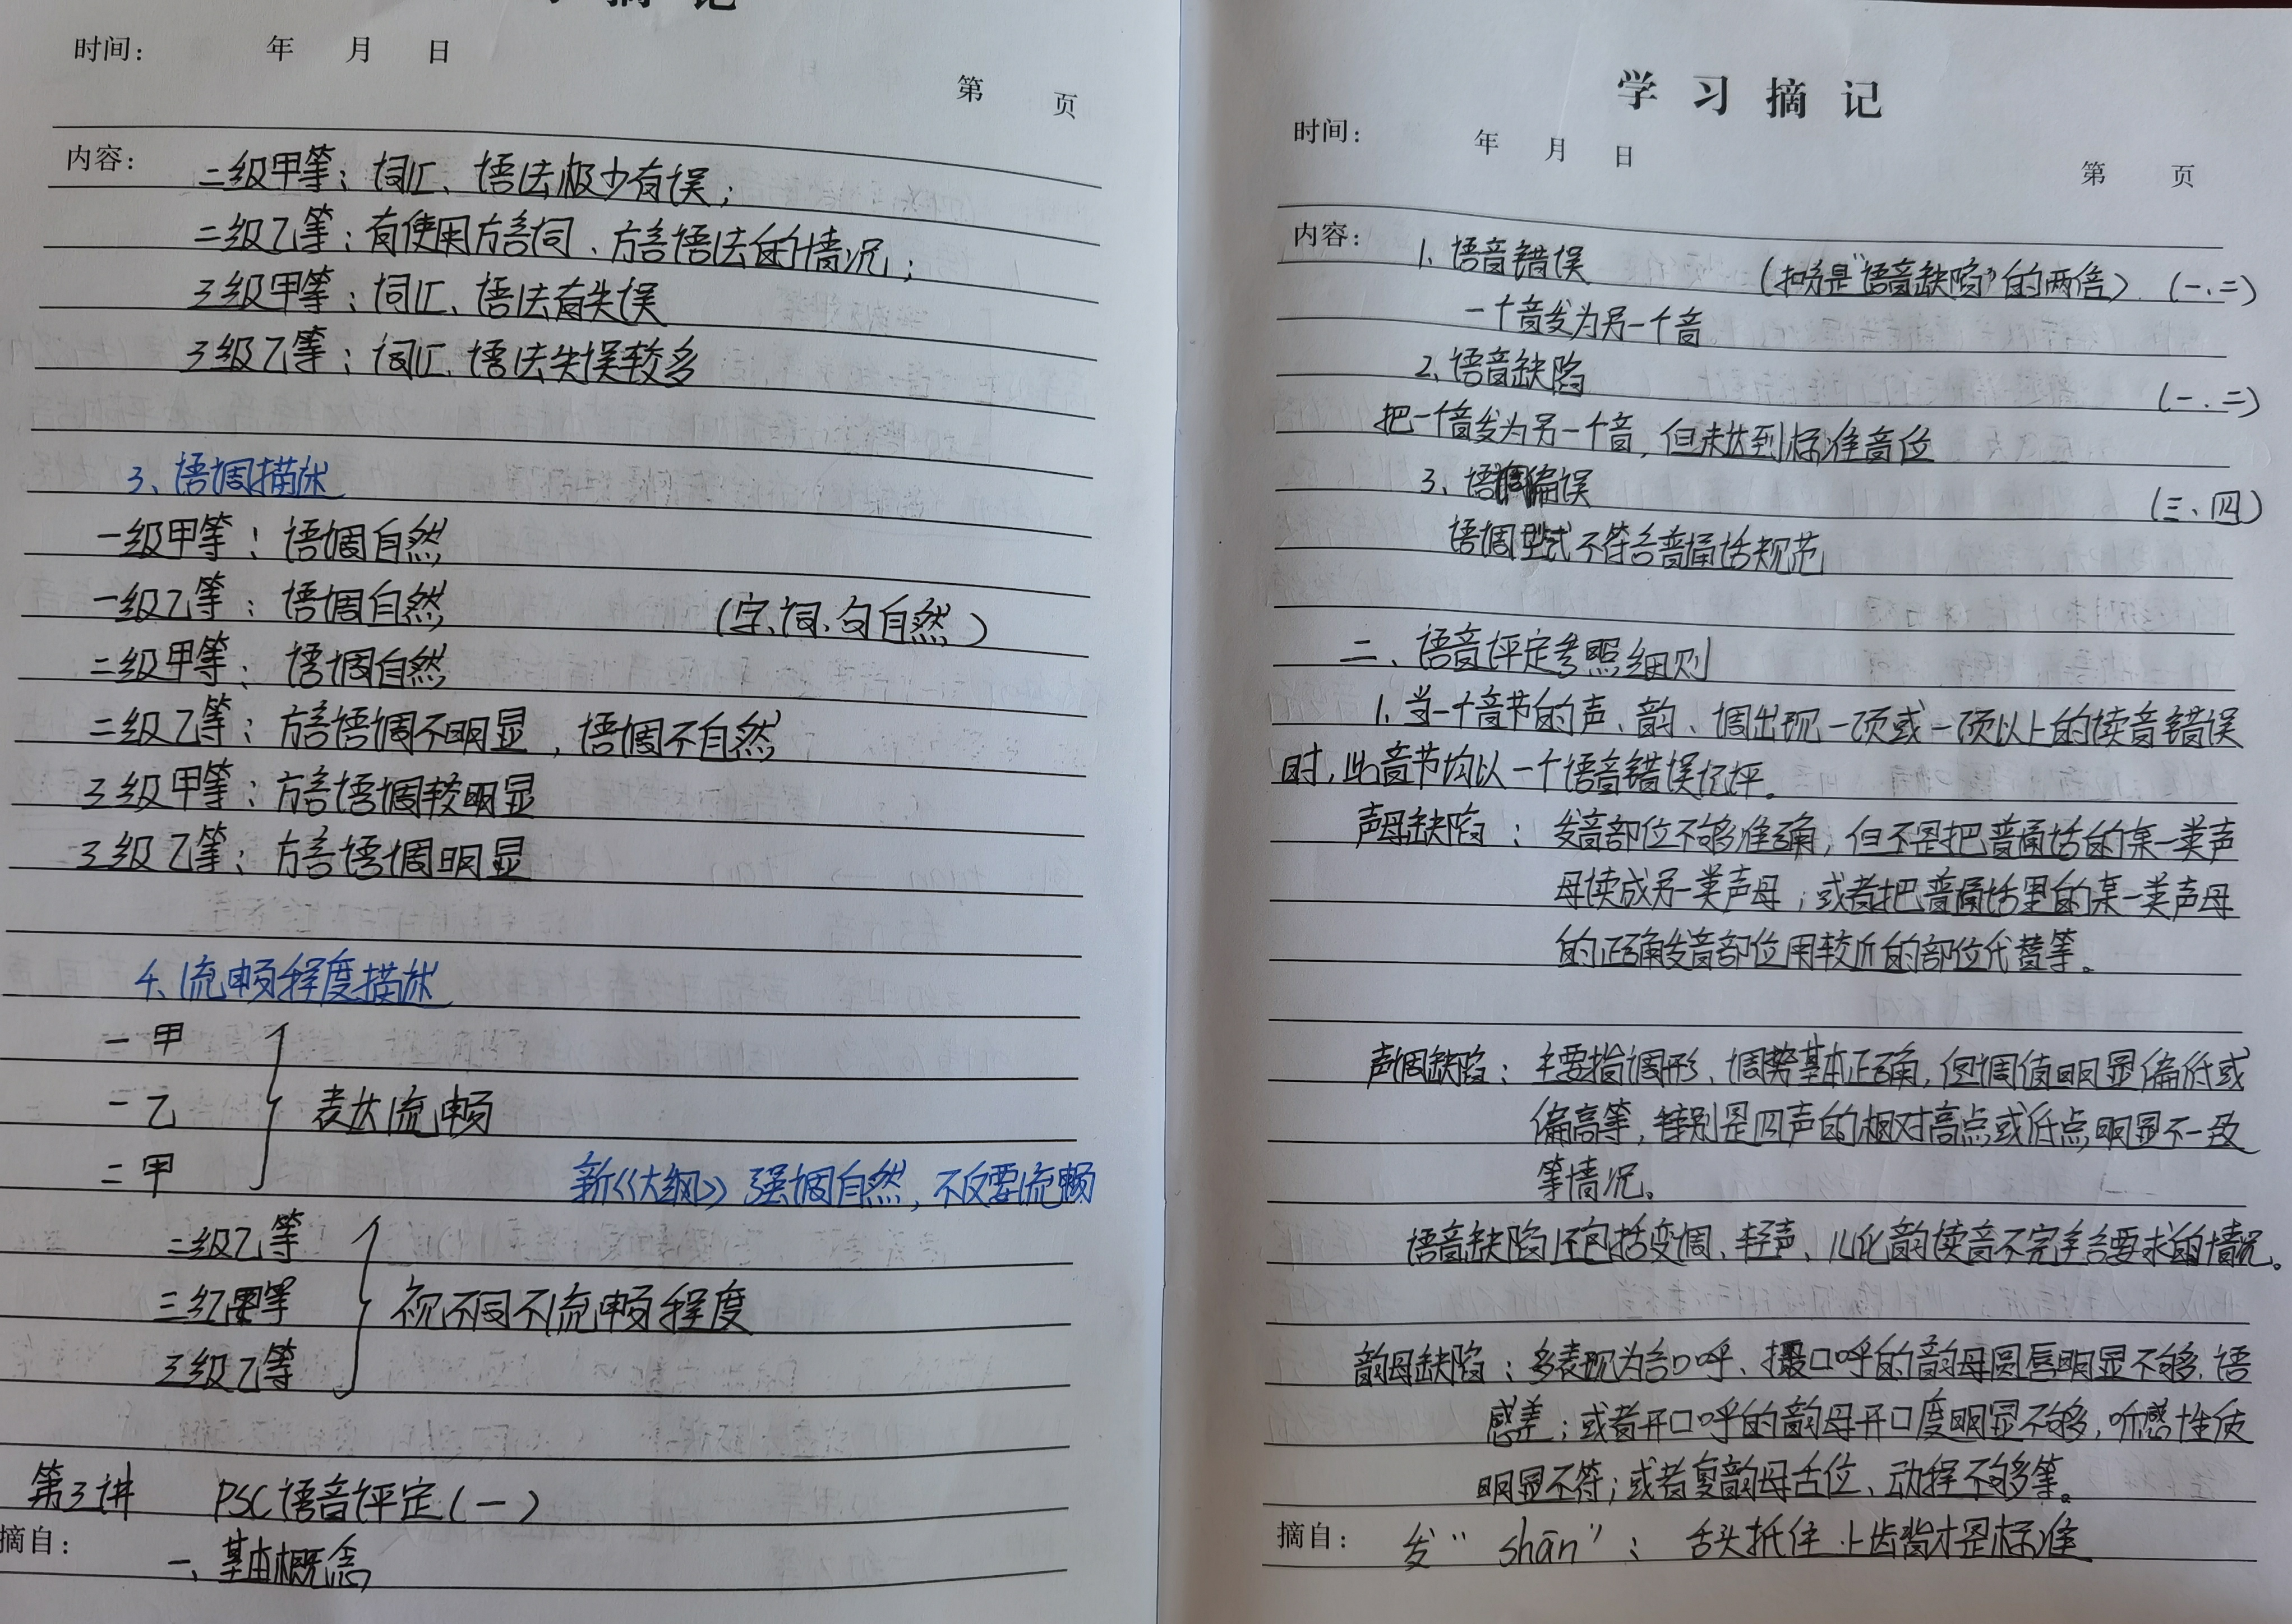 习 摘 记
时间： 年 月 日
第 页
内容： 二级甲等：词汇、语法极少有误；
二级乙等：有使用方言词、方言语法的情况；
3级甲等：词汇、语法有失误
3级乙等：词汇、语法失误较多
3、语调描述
一级甲等：语调自然
一级乙等：语调自然 （字、词、句自然）
二级甲等：语调自然
二级乙等：方言语调不明显，语调不自然
3级甲等：方言语调较明显
3级乙等：方言语调明显
4、流畅程度描述
一甲
一乙 表达流畅
二甲
新《大纲》强调自然，不仅要流畅
二级乙等
三级甲等 视不同不流畅程度
3级乙等
第3讲 PSC语音评定（一）
摘自： 一、基本概念
学 习 摘 记
时间： 年 月 日
第 页
内容： 1、语音错误 （扣分是“语音缺陷”的两倍）（一、二）
一个音发为另一个音
2、语音缺陷 （一、二）
把一个音发为另一个音，但未达到标准音位
3、语调偏误 （三、四）
语调型式不符合普通话规范
二、语音评定参照细则
1、当一个音节的声、韵、调出现一项或一项以上的读音错误
时，此音节均以一个语音错误
声母缺陷：发音部位不够准确，但不是把普通话的某一类声
母读成另一类声母；或者把普通话里的某一类声母
的正确发音部位用较近的部位代替等。
声调缺陷：主要指调形、调势基本正确，但调值明显偏低或
偏高等，特别是四声的相对高点或低点明显不一致
等情况。
语音缺陷还包括变调、轻声、儿化韵读音不完全合要求的情况。
韵母缺陷：多表现为合口呼、撮口呼的韵母圆唇明显不够，语
感差；或者开口呼的韵母开口度明显不够，听感性质
明显不符；或者复韵母舌位、动程不够等。
摘自： 发“shān”：舌头抵住上齿背才是标准